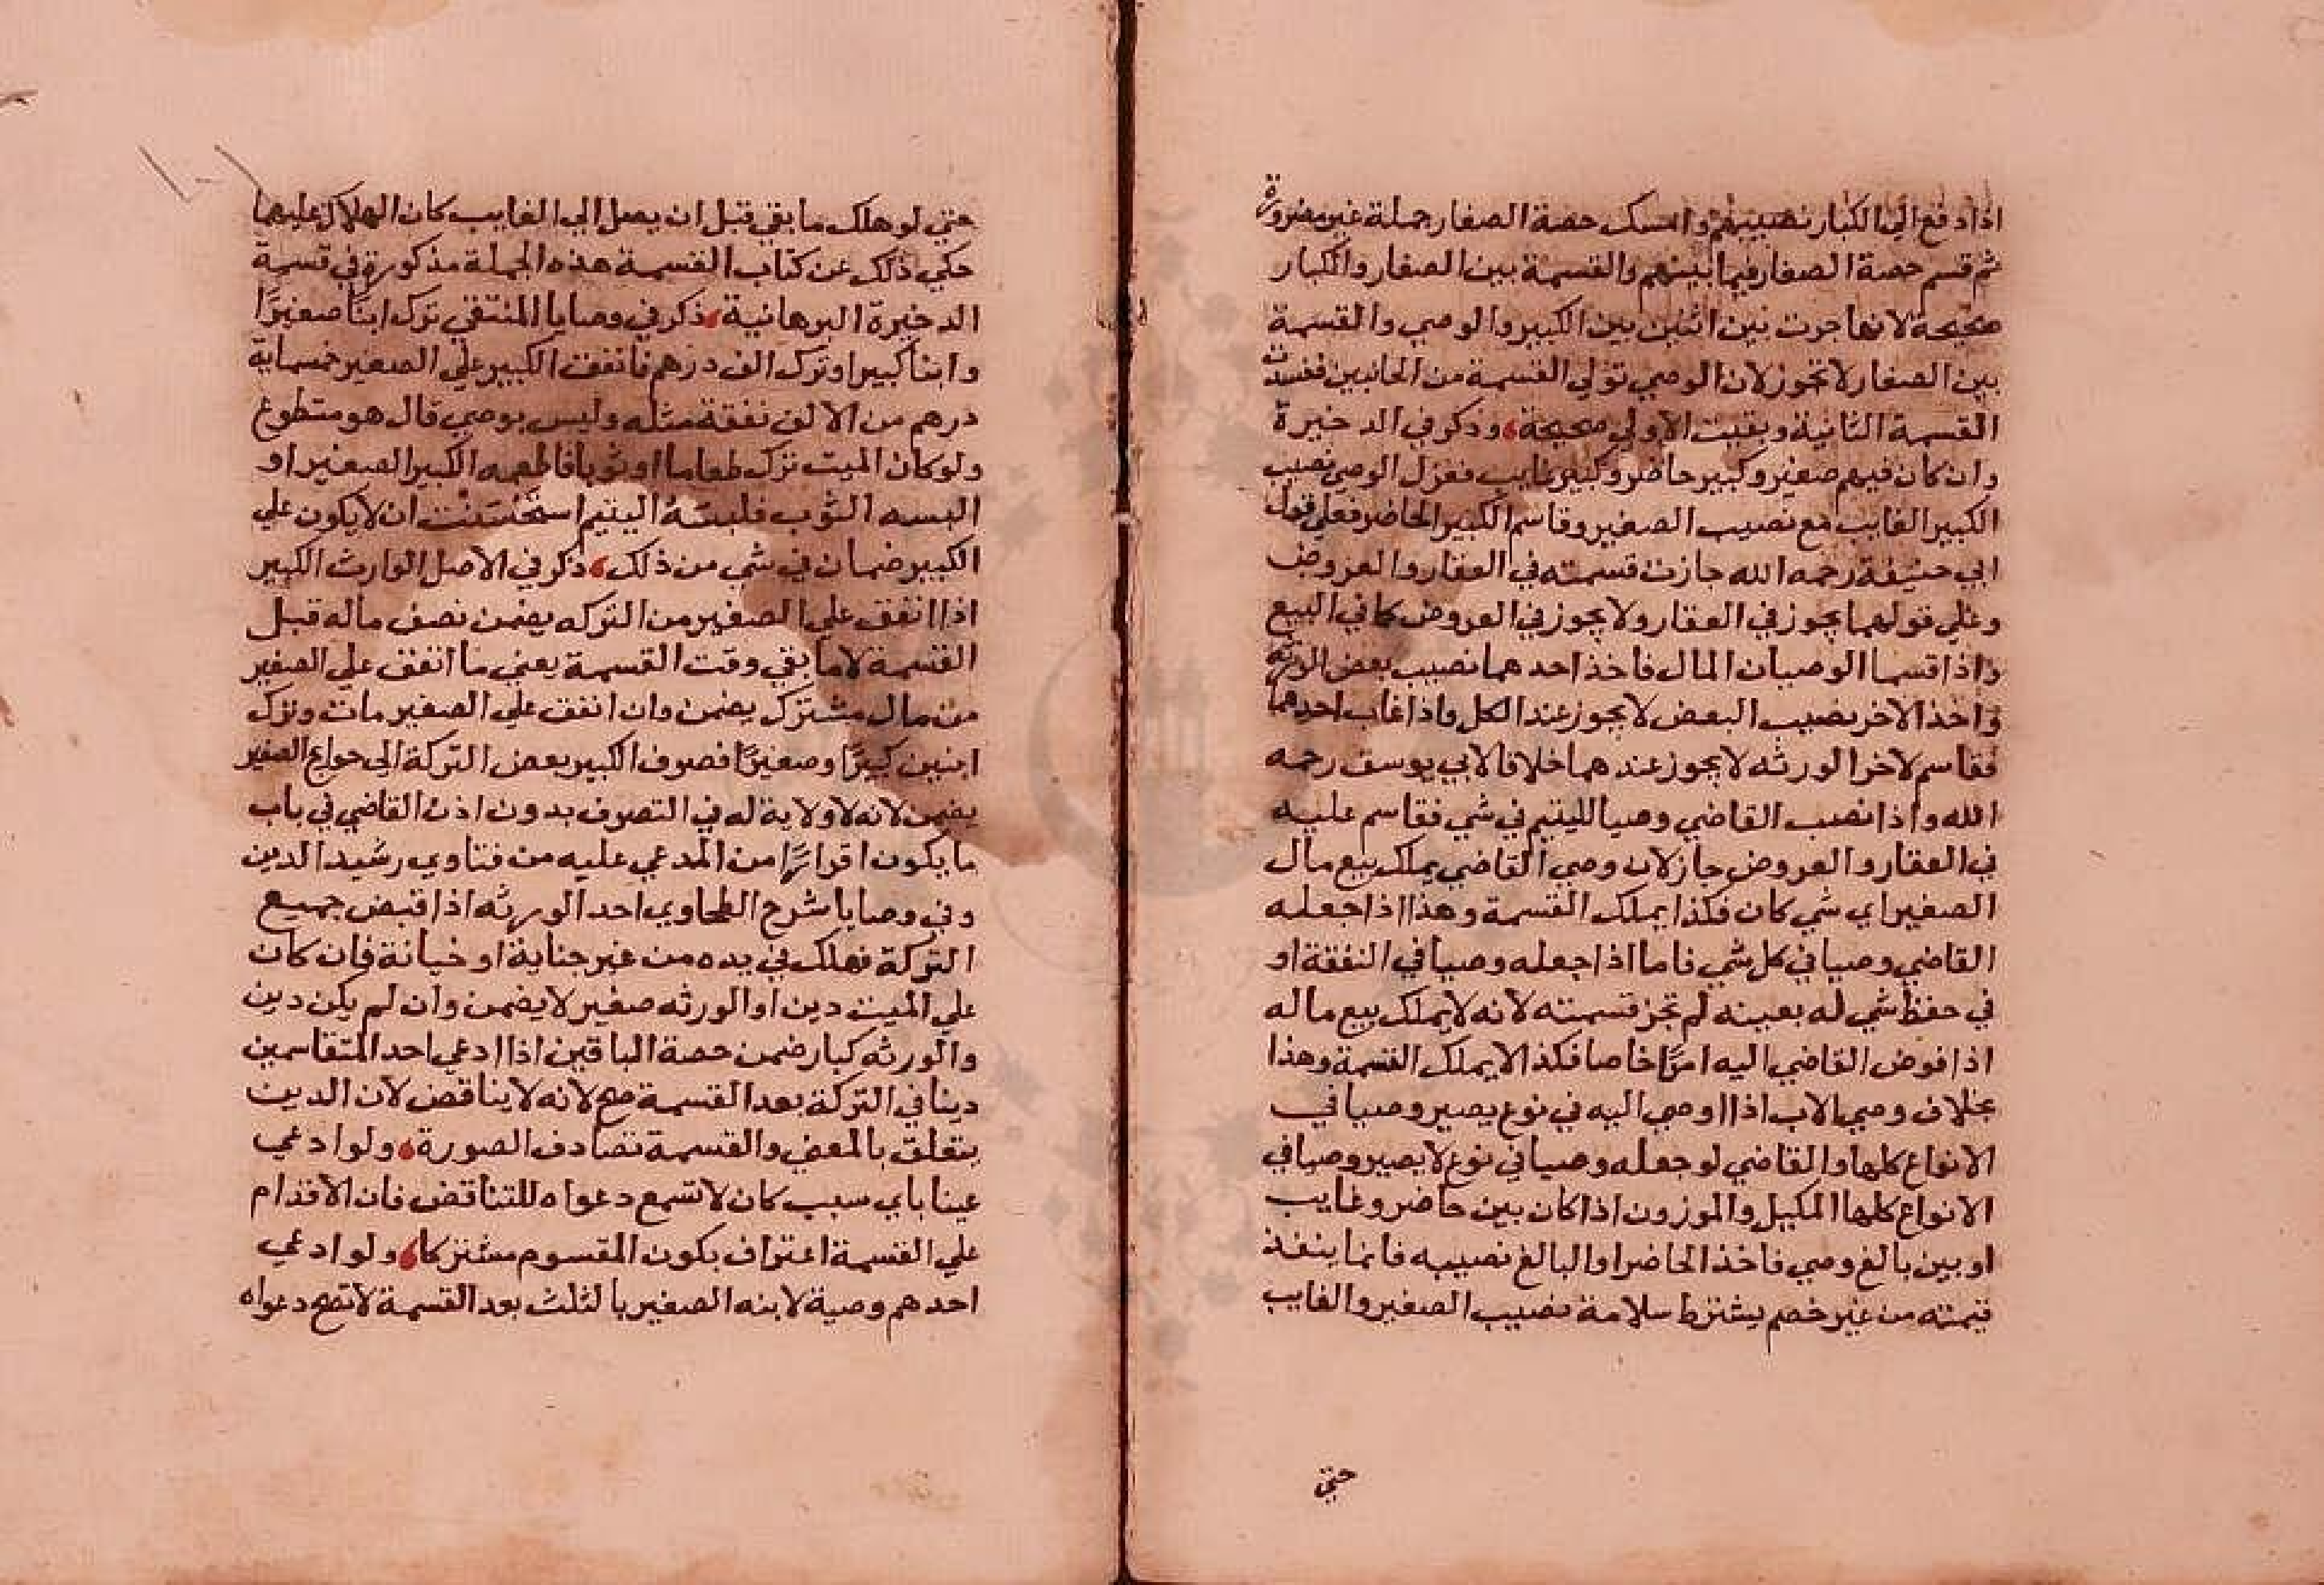 اذا دفع الي الكبار نصيبهم وامسك حصة الصغار جملة غير مفروزة
ثم قسم حصة الصغار فيما بينهم والقسمة بين الصغار والكبار
صحيحة لانها جرت بين اثنين بين الكبير والوصي والقسمة
بين الصغار لا تجوز لان الوصي تولي القسمة من الجانبين ففسدت
القسمة الثانية وبقيت الاولي صحيحة وذكر في الدخيرة
وان كان فيهم صغير وكبير حاضر وكبير غايب فعزل الوصي نصيب
الكبير الغايب مع نصيب الصغير وقاسم الكبير الحاضر فعلي قول
ابي حنيفة رحمه الله جازت قسمته في العقار والعروض
وعلي قولهما يجوز في العقار ولا يجوز في العروض كما في البيع
واذا قسما الوصيان المال فاخذ احدهما نصيب بعض الورثه
واخذ الاخر نصيب البعض لا يجوز عند الكل واذا غاب احدهما
فقاسم لاخر الورثه لا يجوز عندهما خلافا لابي يوسف رحمه
الله واذا نصب القاضي وصيا لليتيم في شي فقاسم عليه
في العقار والعروض جاز لان وصي القاضي يملك بيع مال
الصغير اي شي كان فكذا يملك القسمة وهذا اذا جعله
القاضي وصيا في كل شي فاما اذا جعله وصيا في النفقة او
في حفظ شي له بعينه لم تجز قسمته لانه لا يملك بيع ماله
اذا فوض القاضي اليه امرًا خاصا فكذا لا يملك القسمة وهذا
بخلاف وصي الاب اذا اوصي اليه في نوع يصير وصيا في
الانواع كلها والقاضي لو جعله وصيا في نوع لا يصير وصيا في
الانواع كلها المكيل والموزون اذا كان بين حاضر وغايب
او بين بالغ وصي فاخذ الحاضر او البالغ نصيبه فانما ينفذ
قيمته من غير خصم يشترط سلامة نصيب الصغير والغايب
حتي
حتي لو هلك ما بقي قبل ان يصل الي الغايب كان الهلاك عليهما
حكي ذلك عن كتاب القسمة هذه الجملة مذكورة في قسمة
الدخيرة البرهانية ذكر في وصايا المنتقي ترك ابنا صغيرًا
وابنا كبيرا وترك الف درهم فانفق الكبير علي الصغير خمسماية
درهم من الالف نفقة مثله وليس بوصي قال هو متطوع
ولو كان الميت ترك طعاما او ثوبا فاطعمه الكبير الصغير او
البسه الثوب فلبسه اليتيم استحسنت ان لا يكون علي
الكبير ضمان في شي من ذلك ذكر في الاصل الوارث الكبير
اذا انفق علي الصغير من التركه يضمن نصف ماله قبل
القسمة لا ما بقي وقت القسمة يعني ما انفق علي الصغير
من مال مشترك يضمن وان انفق علي الصغير مات وترك
ابنين كبيرًا وصغيرًا فصرف الكبير بعض التركة الي حوايج الصغير
يضمن لانه لا ولاية له في التصرف بدون اذن القاضي في باب
ما يكون اقرارًا من المدعي عليه من فتاوي رشيد الدين
وفي وصايا شرح الطحاوي احد الورثه اذا قبض جميع
التركة فهلك في يده من غير جناية او خيانة فان كان
علي الميت دين او الورثه صغير لا يضمن وان لم يكن دين
والورثه كبار ضمن حصة الباقين اذا ادعي احد المتقاسمين
دينا في التركة بعد القسمة صح لانه لا يناقض لان الدين
يتعلق بالمعني والقسمة تصادف الصورة ولو ادعي
عينا باي سبب كان لا تسمع دعواه للتناقض فان الاقدام
علي القسمة اعتراف بكون المقسوم مشتركا ولو ادعي
احدهم وصية لابنه الصغير بالثلث بعد القسمة لا تصح دعواه